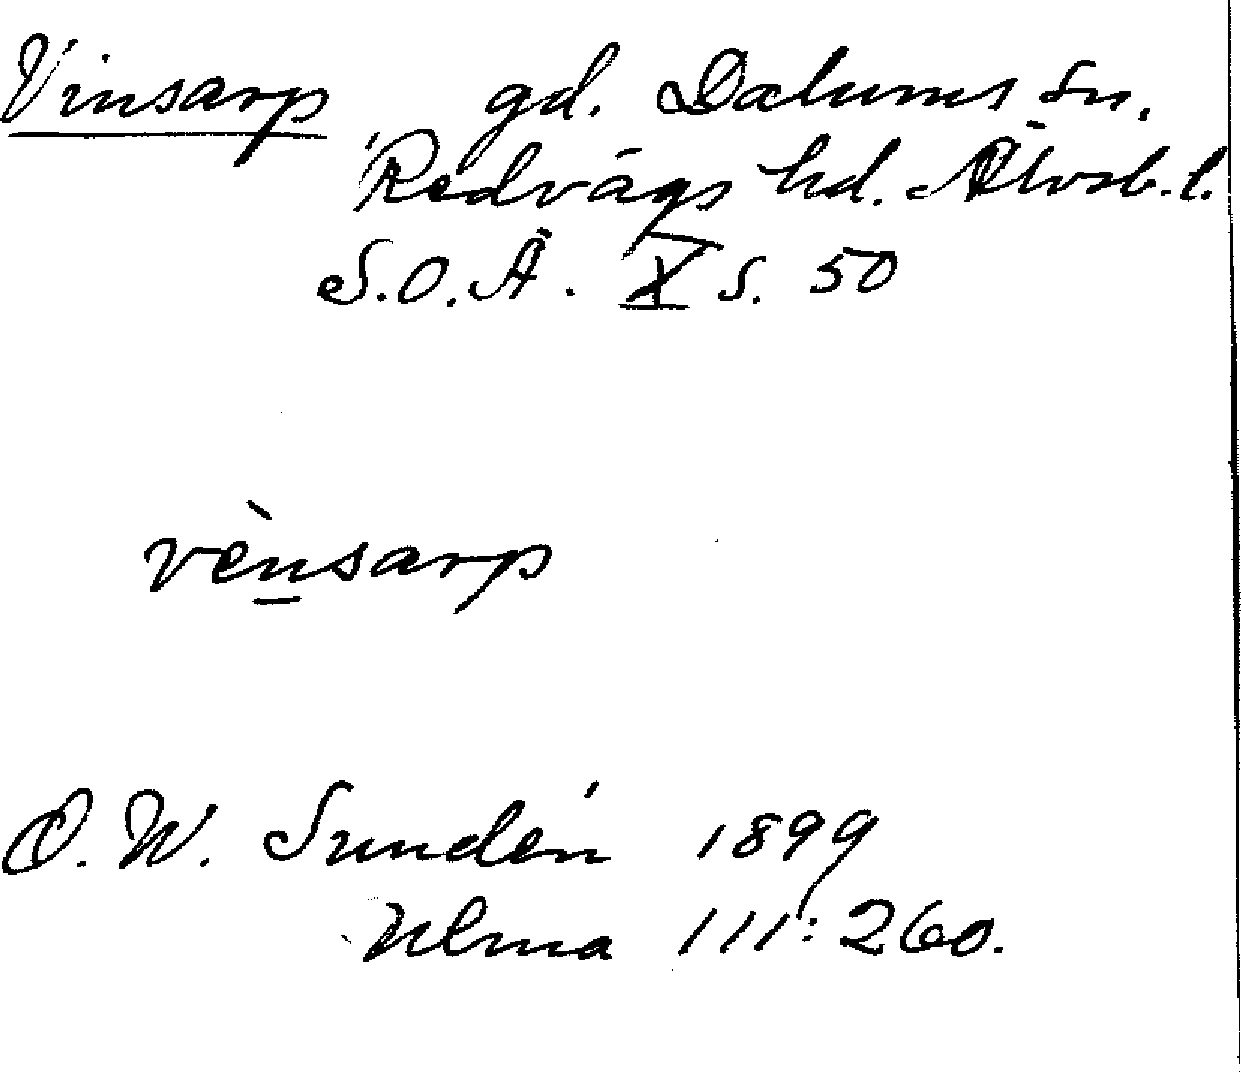 Vinsarp gd. Dalums sn.
Redvägs hd. Älvsb. l.
S.O.Ä. X s. 50
vènsarp
O. W. Sundén 1899
Ulma 111:260.